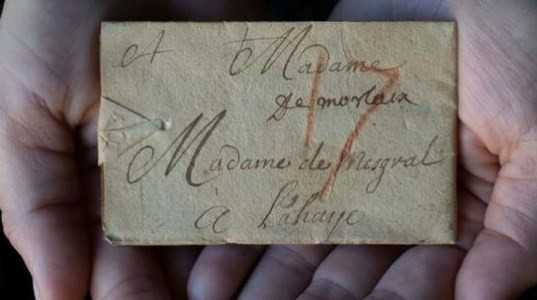 et Madame
De morlaix
Madame de Mesgral
à Lahaye
17